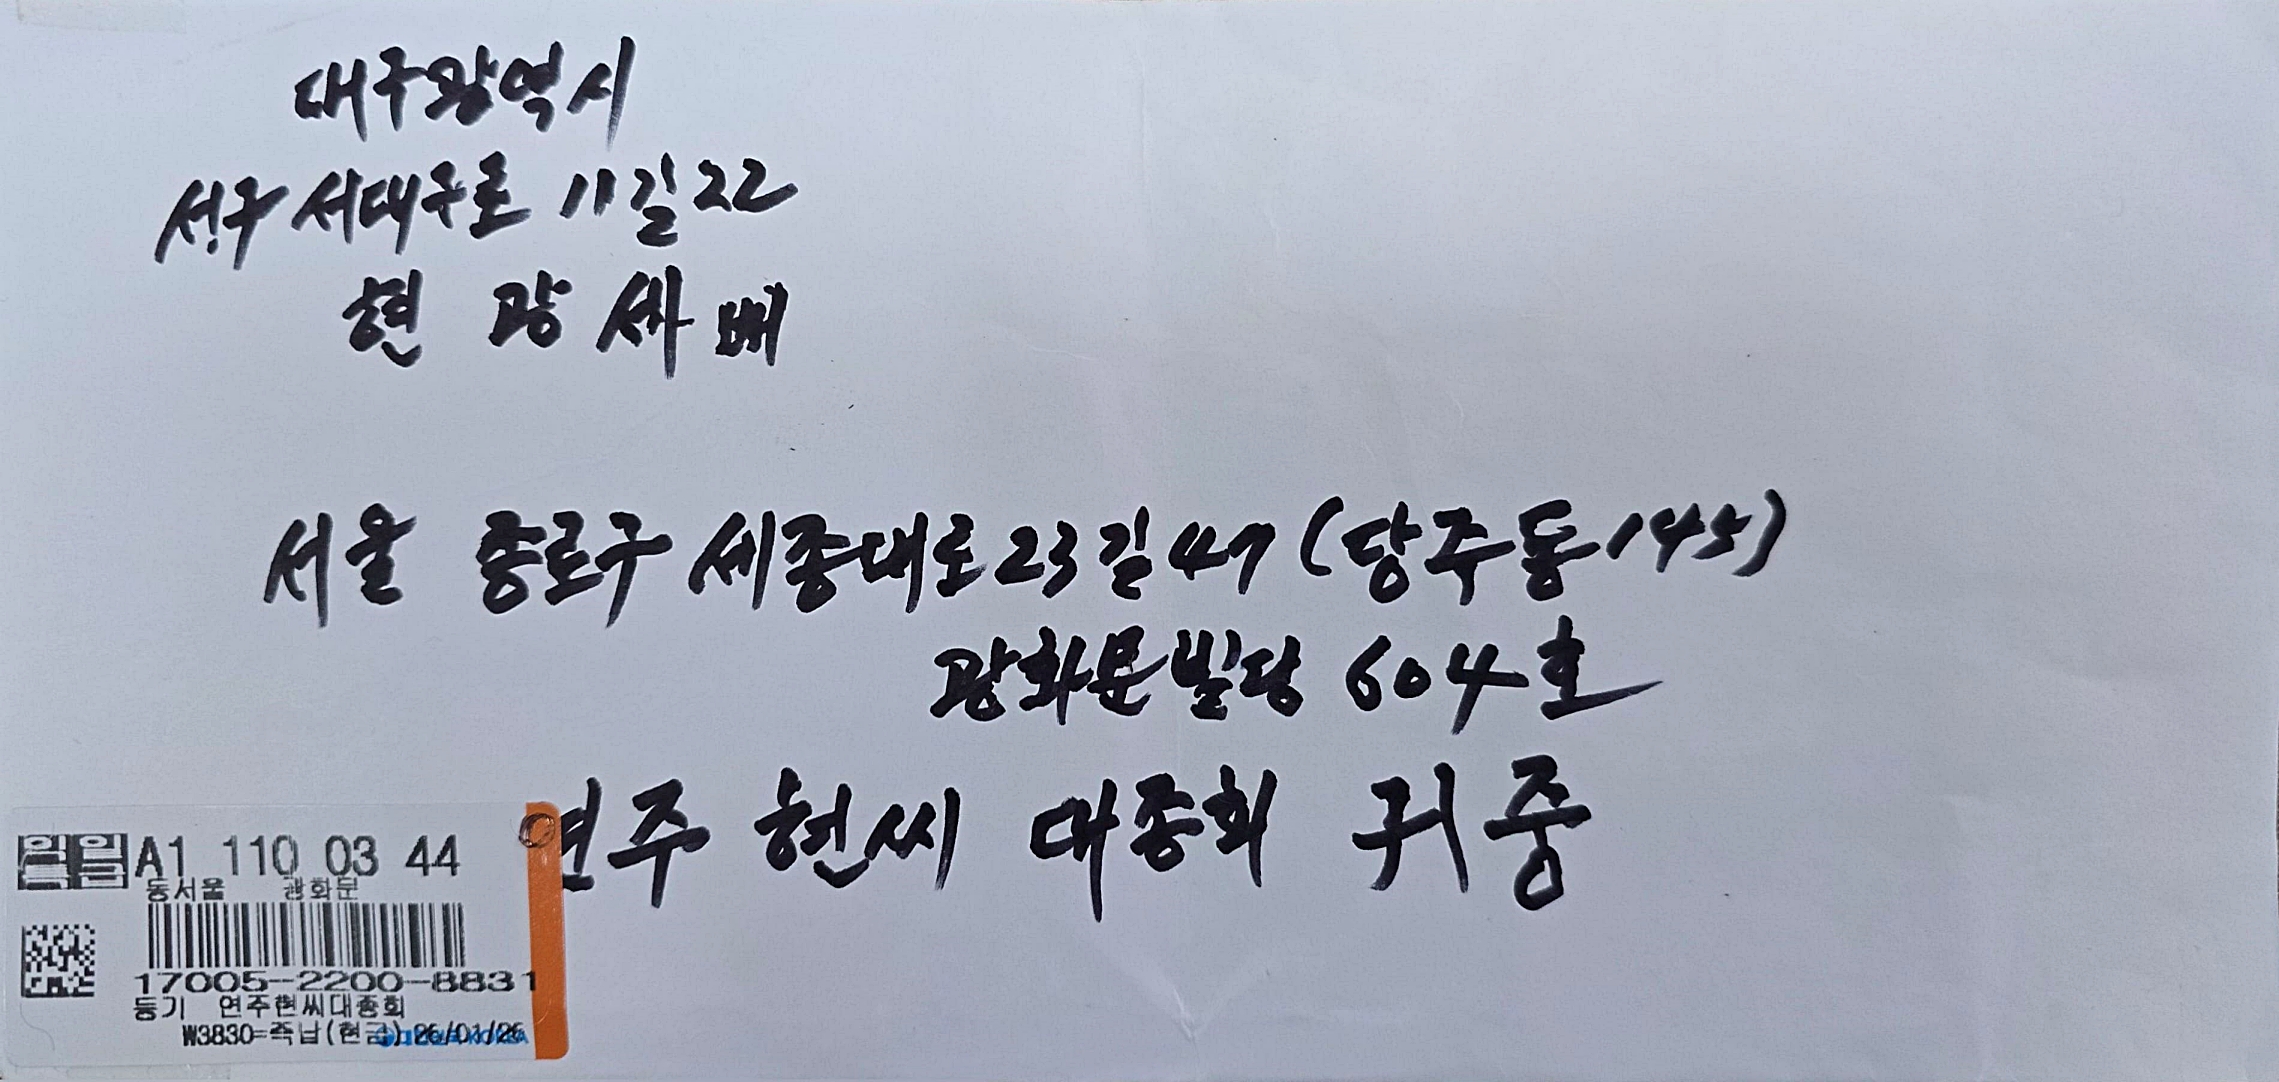 대구광역시
서구 서대구로 11길 22
현 광
서울 종로구 세종대로23길 47 (당주동 145)
광화문빌딩 604호
연주 현씨 대종회 귀중
익일 A1 110 03 44
동서울 광화문
17005-2200-8831
등기 연주현씨대종회
₩3830=즉납(현금) 26/01/26
KOREA